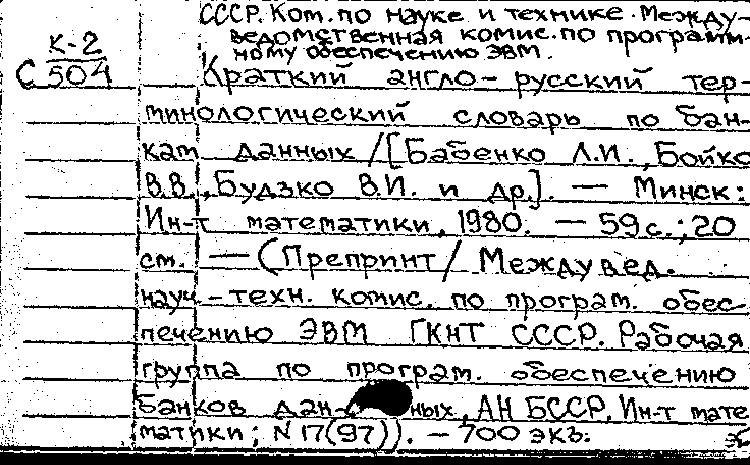 СССР. Ком. по науке и технике. Между-
ведомственная комис. по программ-
ному обеспечению ЭВМ.
К-2
С 504
Краткий англо-русский тер-
минологический словарь по бан-
кам данных /[Бабенко Л.И., Бойко
В.В., Будзко В.И. и др.]. — Минск:
Ин-т математики, 1980. — 59 с.; 20
см. — (Препринт / Междувед.
науч.-техн. комис. по програм. обес-
печению ЭВМ ГКНТ СССР. Рабочая
группа по програм. обеспечению
банков дан- ных, АН БССР, Ин-т мате
матики; N 17(97)). — 700 экз.